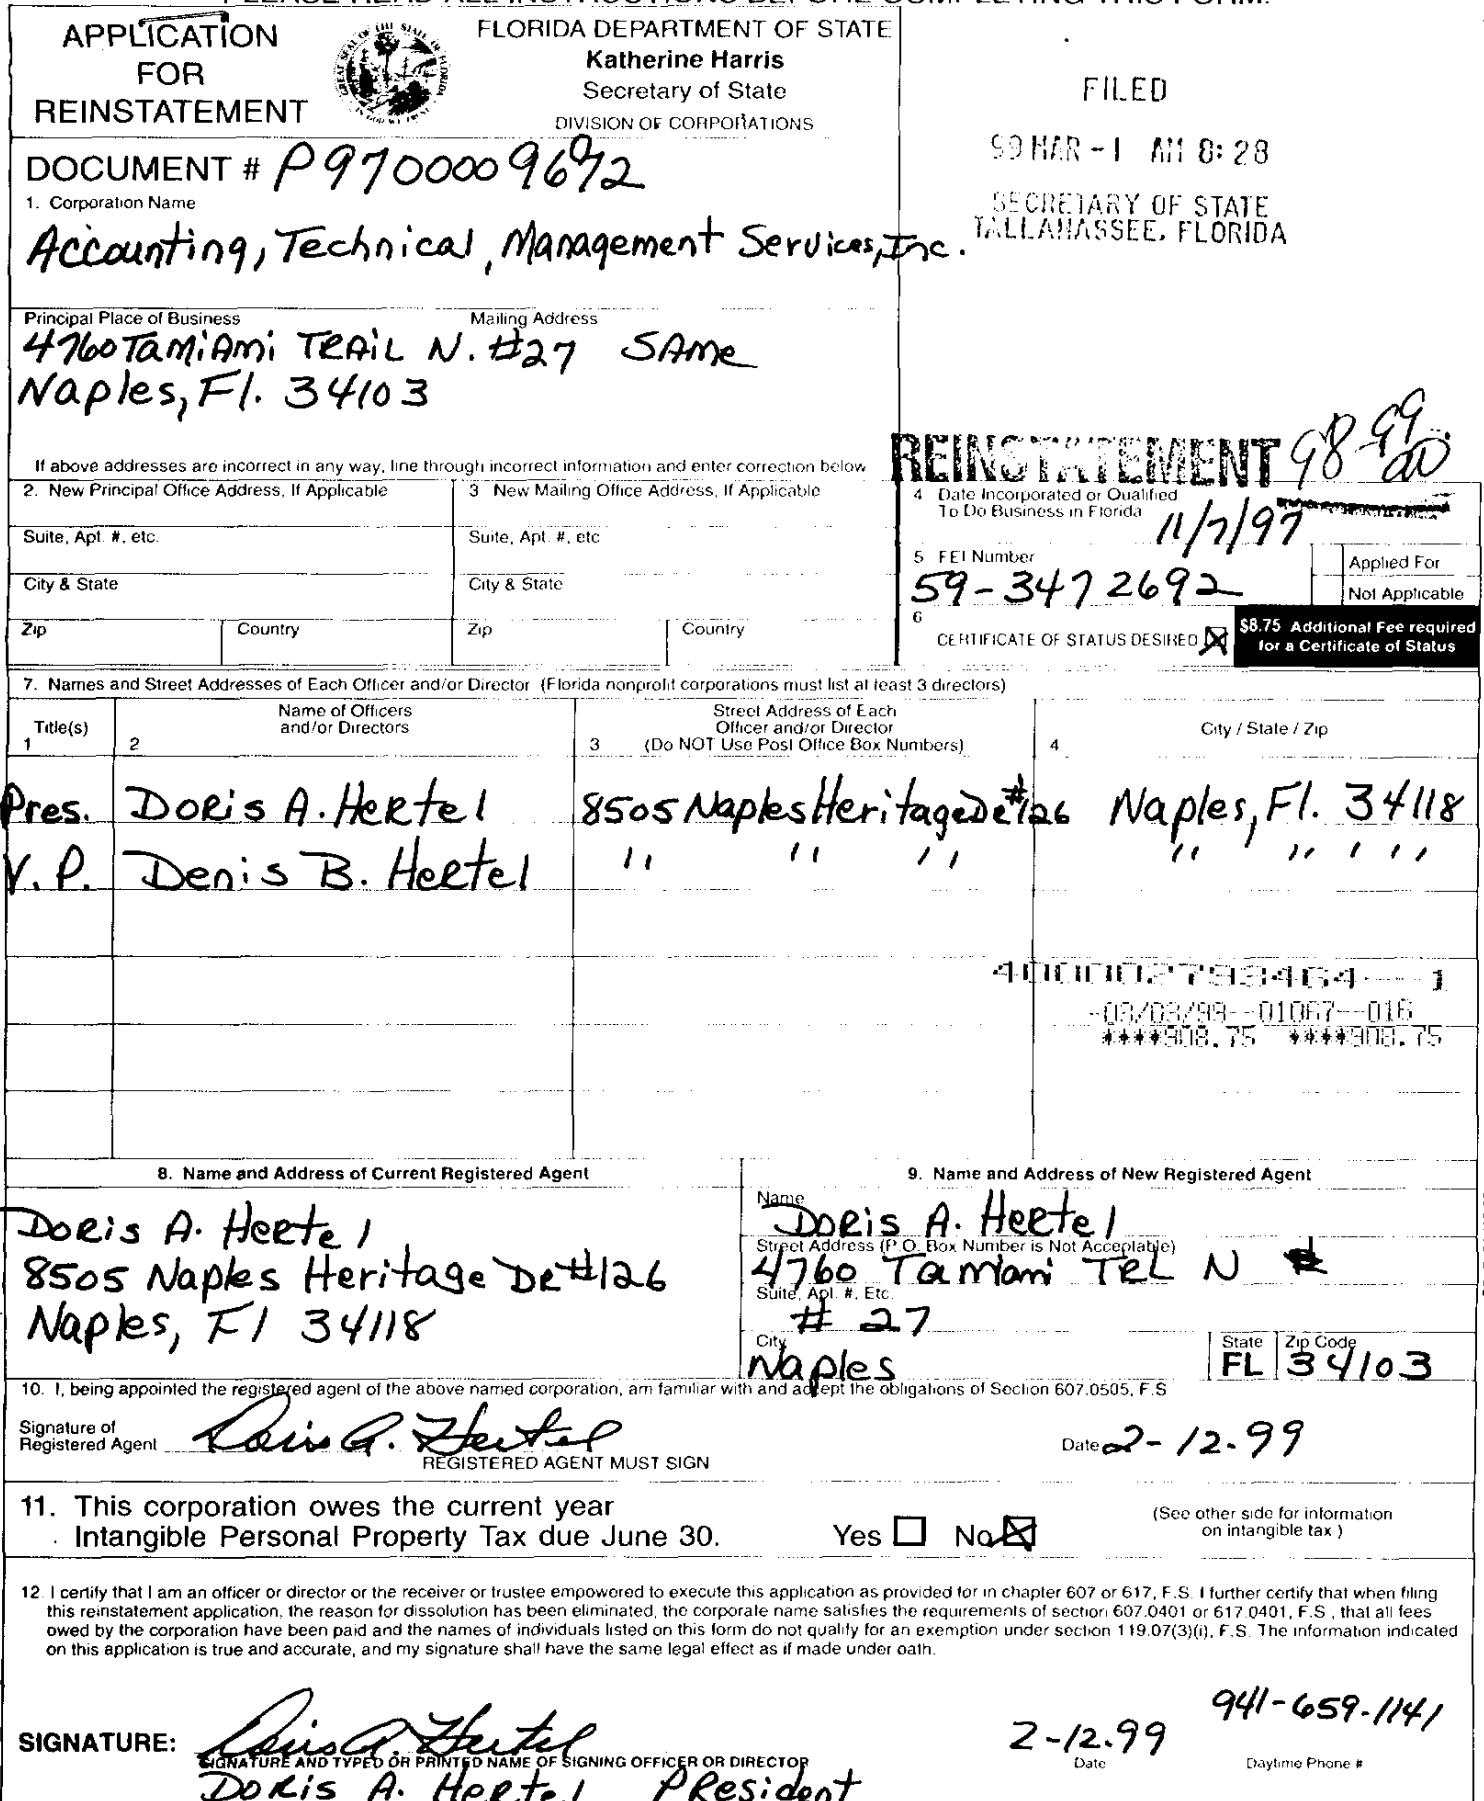 PLEASE READ ALL INSTRUCTIONS BEFORE COMPLETING THIS FORM.
APPLICATION
FOR
REINSTATEMENT
FLORIDA DEPARTMENT OF STATE
Katherine Harris
Secretary of State
DIVISION OF CORPORATIONS
FILED
99 MAR -1 AM 8:28
SECRETARY OF STATE
TALLAHASSEE, FLORIDA
DOCUMENT # P97000096
1. Corporation Name
Accounting, Technical, Management Services, Inc.
Principal Place of Business Mailing Address
4760 Tamiami TRAIL N. #27 SAME
Naples, Fl. 34103
If above addresses are incorrect in any way, line through incorrect information and enter correction below
REINSTATEMENT 98-99
2. New Principal Office Address, If Applicable
3 New Mailing Office Address, If Applicable
4 Date Incorporated or Qualified
To Do Business in Florida 11/7/97
Suite, Apt. #, etc.
Suite, Apt. #, etc
5 FEI Number
59-3472692
Applied For
Not Applicable
City & State
City & State
Zip Country
Zip Country
6
CERTIFICATE OF STATUS DESIRED ☒
$8.75 Additional Fee required
for a Certificate of Status
7. Names and Street Addresses of Each Officer and/or Director (Florida nonprofit corporations must list at least 3 directors)
Title(s)
1
Name of Officers
and/or Directors
2
Street Address of Each
Officer and/or Director
3 (Do NOT Use Post Office Box Numbers)
City / State / Zip
4
Pres. Doris A. Hertel 8505 Naples Heritage Dr #126 Naples, Fl. 34118
V.P. Denis B. Hertel " " " " " " "
400002793464--1
-03/03/99--01067--016
****908.75 ****908.75
8. Name and Address of Current Registered Agent
Doris A. Hertel
8505 Naples Heritage Dr #126
Naples, Fl 34118
9. Name and Address of New Registered Agent
Name
Doris A. Hertel
Street Address (P.O. Box Number is Not Acceptable)
4760 Tamiami TRL N
Suite, Apt. #, Etc.
# 27
City
Naples
State
FL
Zip Code
34103
10. I, being appointed the registered agent of the above named corporation, am familiar with and accept the obligations of Section 607.0505, F.S
Signature of
Registered Agent Doris A. Hertel
REGISTERED AGENT MUST SIGN
Date 2-12-99
11. This corporation owes the current year
Intangible Personal Property Tax due June 30. Yes ☐ No ☒
(See other side for information
on intangible tax )
12. I certify that I am an officer or director or the receiver or trustee empowered to execute this application as provided for in chapter 607 or 617, F.S. I further certify that when filing
this reinstatement application, the reason for dissolution has been eliminated, the corporate name satisfies the requirements of section 607.0401 or 617.0401, F.S., that all fees
owed by the corporation have been paid and the names of individuals listed on this form do not qualify for an exemption under section 119.07(3)(i), F.S. The information indicated
on this application is true and accurate, and my signature shall have the same legal effect as if made under oath.
SIGNATURE: Doris A. Hertel 2-12.99 941-659-1141
SIGNATURE AND TYPED OR PRINTED NAME OF SIGNING OFFICER OR DIRECTOR Date Daytime Phone #
Doris A. Hertel President